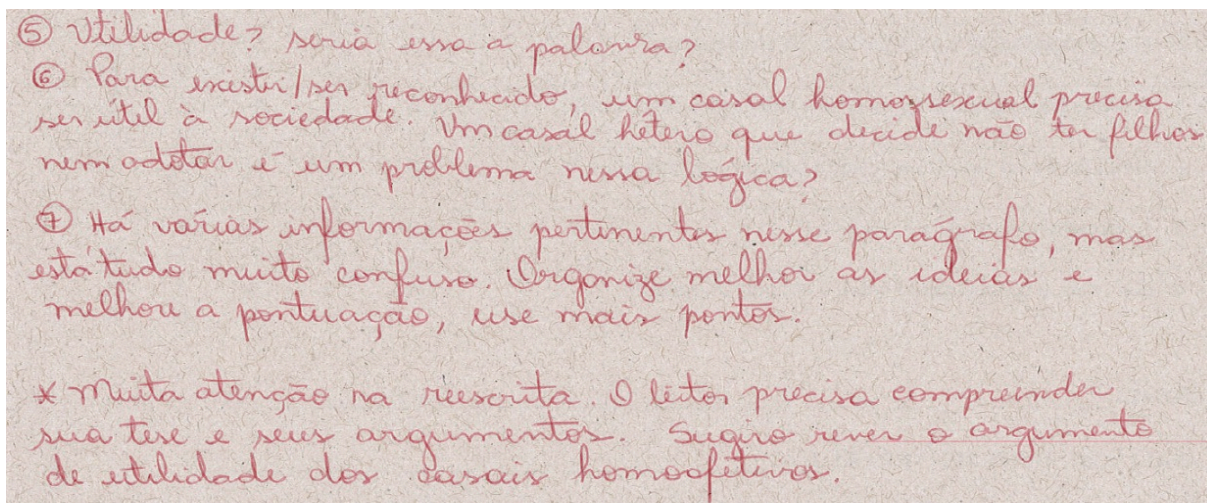 ⑤ Utilidade? seria essa a palavra?
⑥ Para existir/ser reconhecido, um casal homossexual precisa
ser útil à sociedade. Um casal hétero que decide não ter filhos
nem adotar é um problema nessa lógica?
⑦ Há várias informações pertinentes nesse parágrafo, mas
está tudo muito confuso. Organize melhor as ideias e
melhore a pontuação, use mais pontos.
* Muita atenção na reescrita. O leitor precisa compreender
sua tese e seus argumentos. Sugiro rever o argumento
de utilidade dos casais homoafetivos.